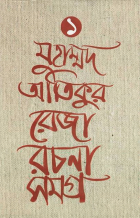 ১
মুহাম্মদ
আতিকুর
রেজা
রচনা
সমগ্র